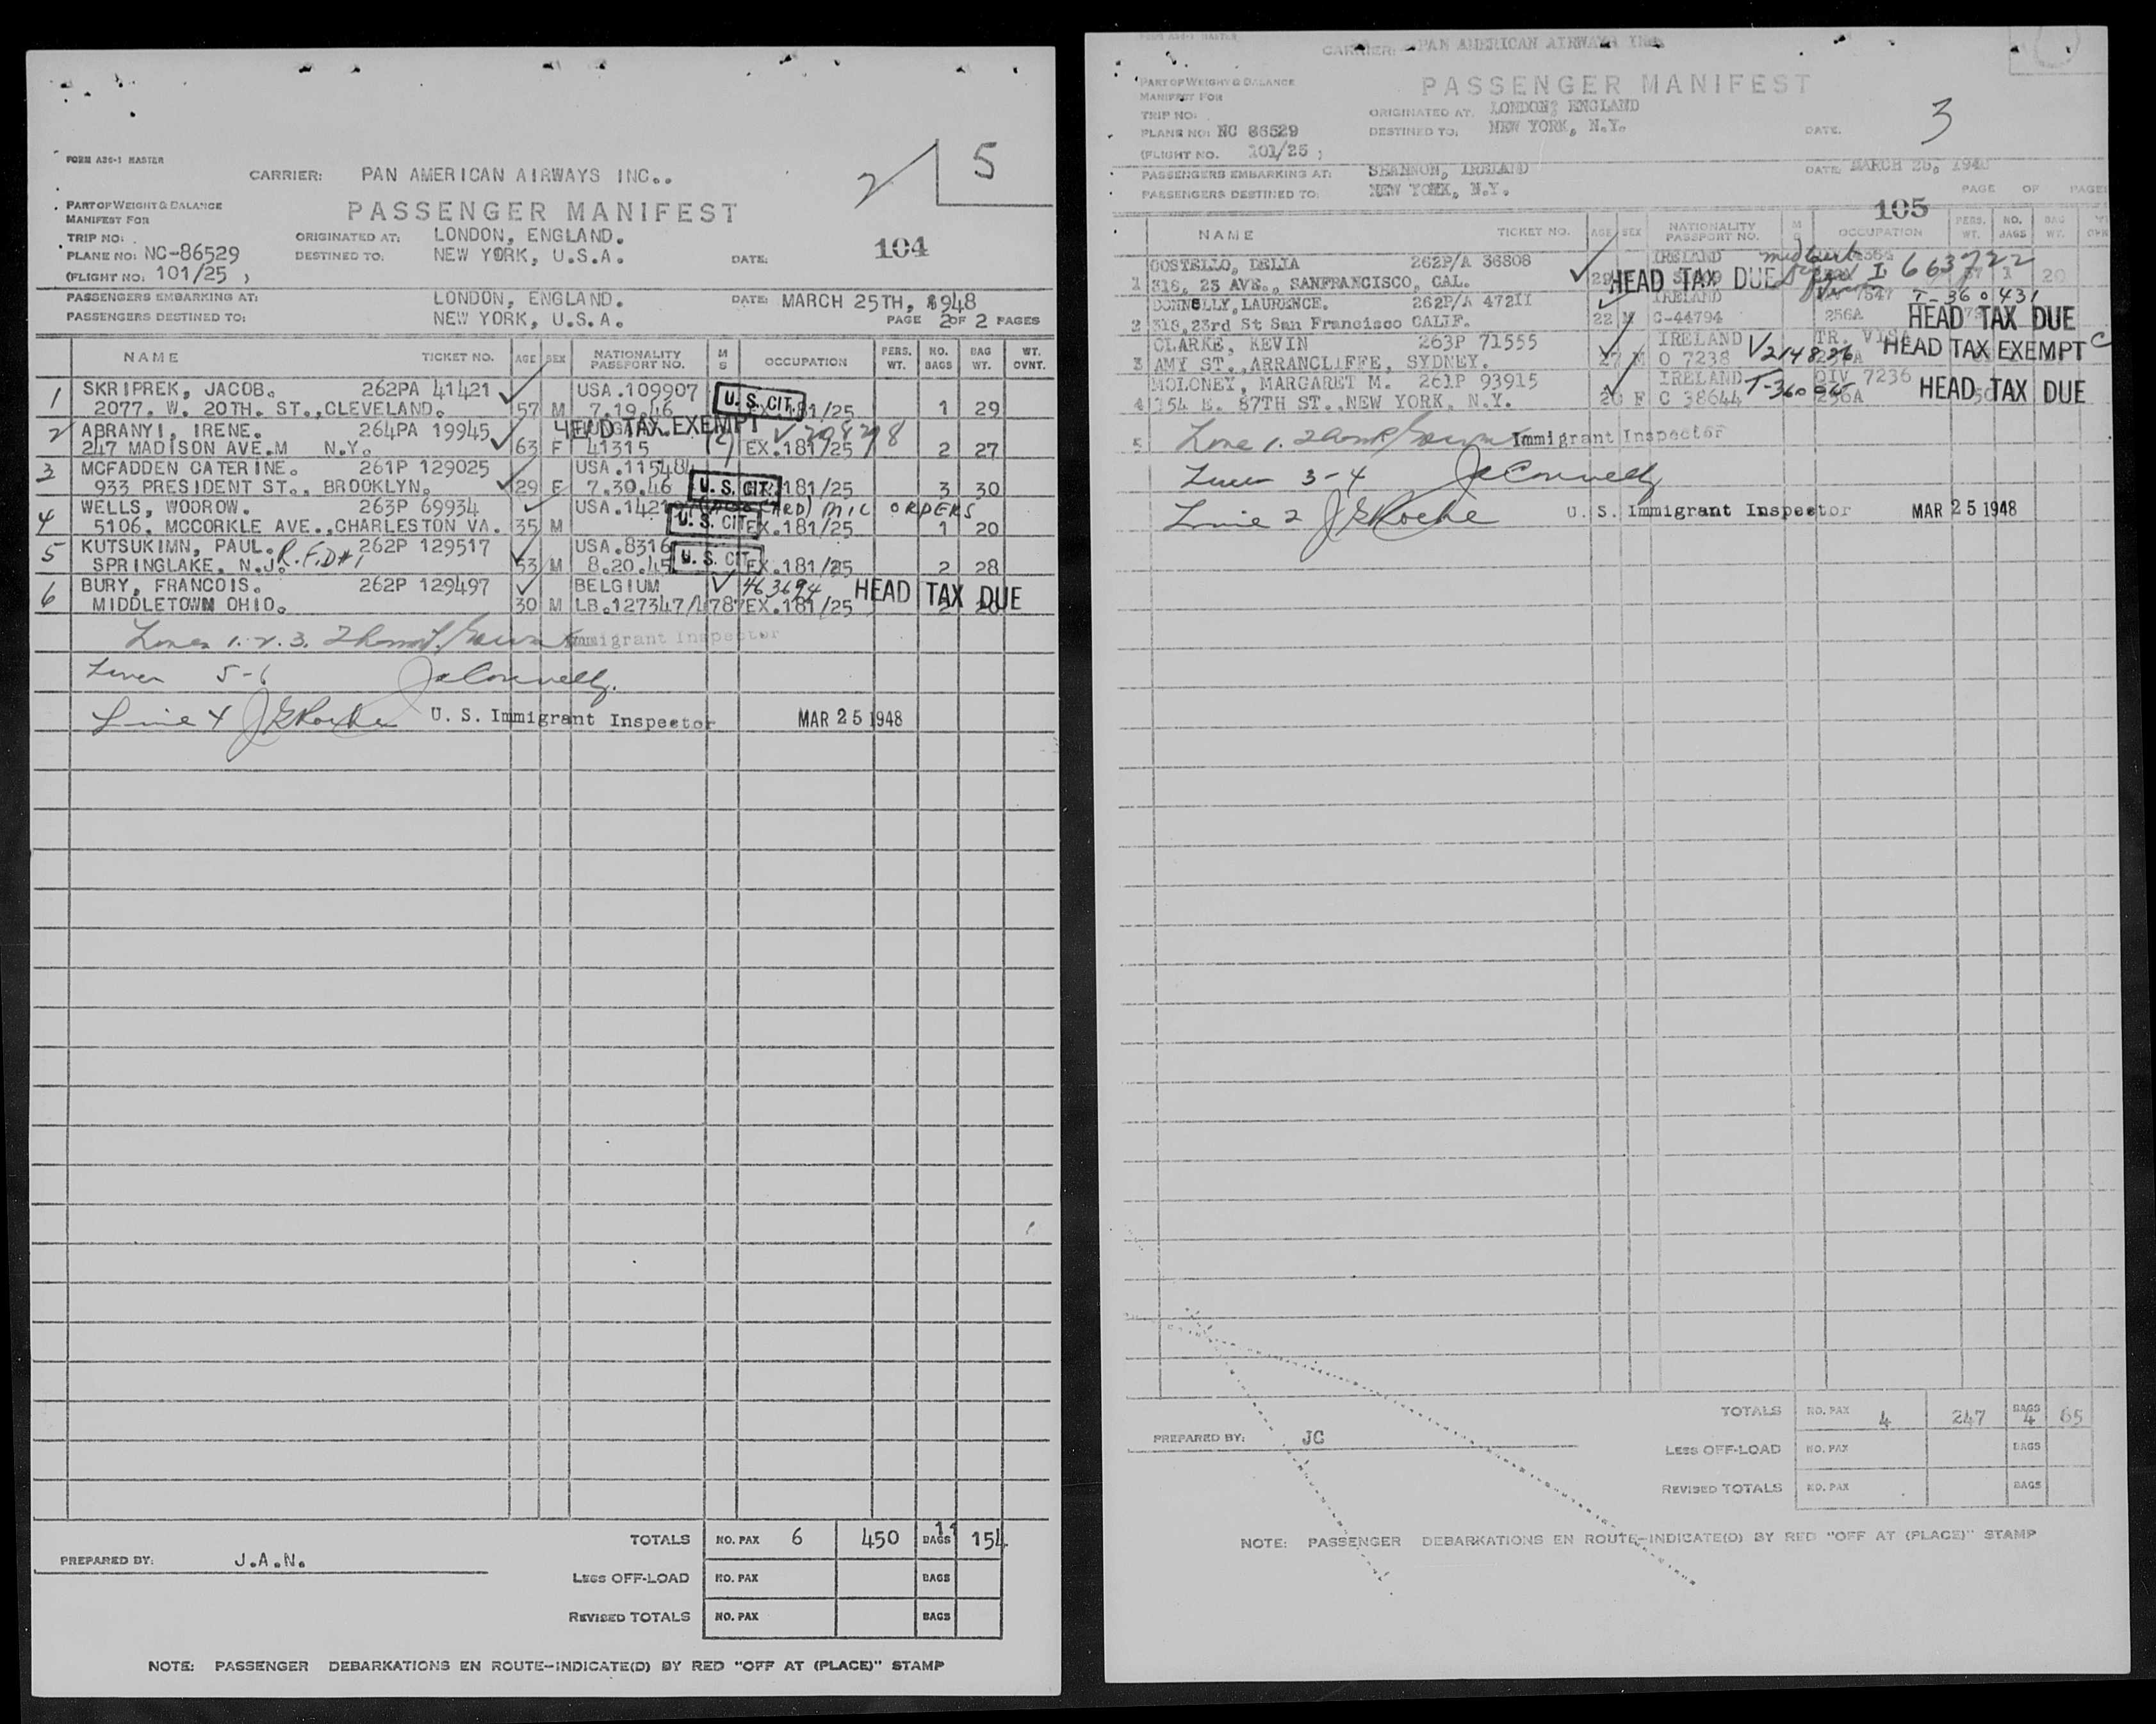 5
2
FORM A26-1 MASTER
CARRIER: PAN AMERICAN AIRWAYS INC..
PART OF WEIGHT & BALANCE
MANIFEST FOR
PASSENGER MANIFEST
TRIP NO:
ORIGINATED AT: LONDON, ENGLAND.
104
PLANE NO: NC-86529
DESTINED TO: NEW YORK, U.S.A.
DATE:
(FLIGHT NO: 101/25 )
PASSENGERS EMBARKING AT: LONDON, ENGLAND. DATE: MARCH 25TH, 1948
PASSENGERS DESTINED TO: NEW YORK, U.S.A. PAGE 2 OF 2 PAGES
NAME TICKET NO. AGE SEX NATIONALITY PASSPORT NO. M S OCCUPATION PERS. WT. NO. BAGS BAG WT. WT. OVNT.
1 SKRIPREK, JACOB. 262PA 41421 USA.109907
2077. W. 20TH. ST.,CLEVELAND. 57 M 7.19.46 U. S. CIT. EX.181/25 1 29
2 ABRANYI, IRENE. 264PA 19945 HEAD TAX EXEMPT
247 MADISON AVE.M N.Y. 63 F 41315 EX.181/25 2 27
3 MCFADDEN CATERINE. 261P 129025 USA.115484
933 PRESIDENT ST., BROOKLYN. 29 F 7.30.46 U. S. CIT. 181/25 3 30
4 WELLS, WOOROW. 263P 69934 USA.1421 MIL ORDERS
5106. MCCORKLE AVE.,CHARLESTON VA. 35 M U. S. CIT. EX.181/25 1 20
5 KUTSUKIMN, PAUL. R.F.D #1 262P 129517 USA.8316
SPRINGLAKE. N.J. 53 M 8.20.45 U. S. CIT. EX.181/25 2 28
6 BURY, FRANCOIS. 262P 129497 BELGIUM V 463694 HEAD TAX DUE
MIDDLETOWN OHIO. 30 M LB.127347/4787 EX.181/25 2 20
Lines 1. 2. 3. Immigrant Inspector
Lines 5-6 JaConnelly.
Line 4 JERoche U. S. Immigrant Inspector MAR 25 1948
TOTALS NO. PAX 6 450 BAGS 11 154
PREPARED BY: J.A.N.
LESS OFF-LOAD NO. PAX BAGS
REVISED TOTALS NO. PAX BAGS
NOTE: PASSENGER DEBARKATIONS EN ROUTE-INDICATE(D) BY RED "OFF AT (PLACE)" STAMP
FORM A26-1 MASTER
CARRIER: PAN AMERICAN AIRWAYS INC.
PART OF WEIGHT & BALANCE
MANIFEST FOR
PASSENGER MANIFEST
3
TRIP NO:
ORIGINATED AT: LONDON, ENGLAND
PLANE NO: NC 86529
DESTINED TO: NEW YORK, N.Y.
DATE.
(FLIGHT NO. 101/25 )
PASSENGERS EMBARKING AT: SHANNON, IRELAND DATE: MARCH 25, 1948
PASSENGERS DESTINED TO: NEW YORK, N.Y. PAGE OF PAGES
105
NAME TICKET NO. AGE SEX NATIONALITY PASSPORT NO. M S OCCUPATION PERS. WT. NO. BAGS BAG WT.
COSTELLO, DELIA 262P/A 36808 IRELAND
1 318, 25 AVE., SANFRANCISCO, CAL. 29 HEAD TAX DUE I 663722 57 1 20
DONNELLY,LAURENCE. 262P/A 47211 IRELAND 7547 T-360431
2 318,23rd St San Francisco CALIF. 22 M C-44794 256A HEAD TAX DUE
CLARKE, KEVIN 263P 71555 IRELAND TR. VISA
3 AMY ST.,ARRANCLIFFE, SYDNEY. 27 M O 7238 V214826 HEAD TAX EXEMPT C
MOLONEY, MARGARET M. 261P 93915 IRELAND QIV 7236
4 154 E. 87TH ST.,NEW YORK, N.Y. 20 F C 38644 256A HEAD TAX DUE
5 Line 1. Immigrant Inspector
Lines 3-4 JaConnelly
Line 2 JERoche U. S. Immigrant Inspector MAR 25 1948
TOTALS NO. PAX 4 247 BAGS 4 65
PREPARED BY: JC
LESS OFF-LOAD NO. PAX BAGS
REVISED TOTALS NO. PAX BAGS
NOTE: PASSENGER DEBARKATIONS EN ROUTE-INDICATE(D) BY RED "OFF AT (PLACE)" STAMP